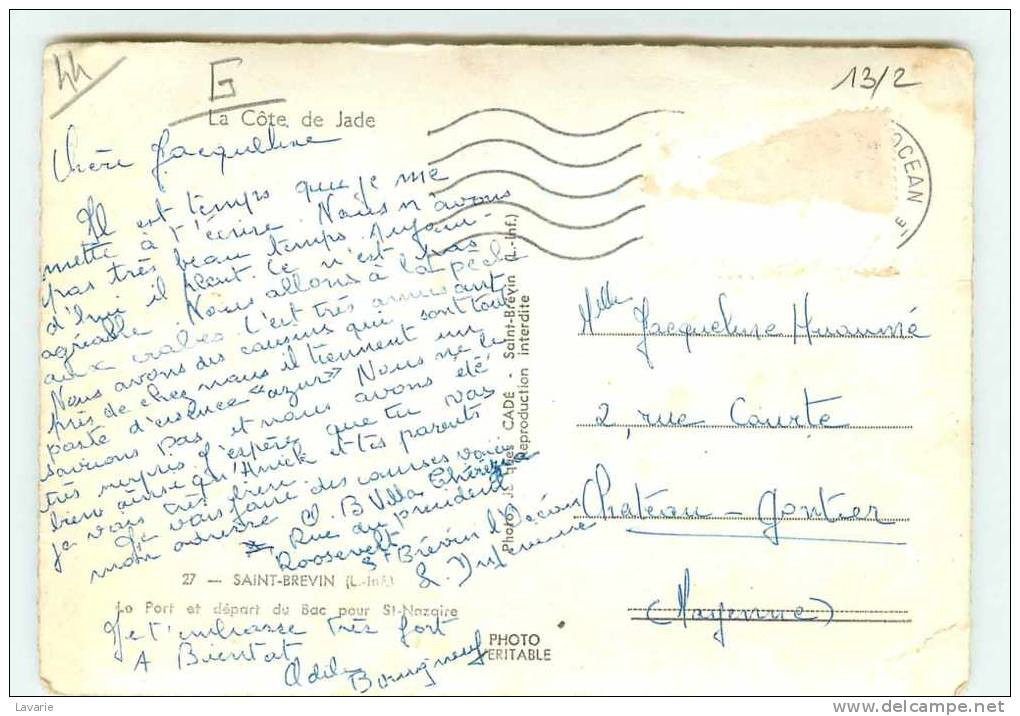 44
G
13/2
La Côte de Jade
OCEAN
Chère Jacqueline
Il est temps que je me
mette à t'écrire. Nous n'avons
pas très beau temps. Aujour-
d'hui il pleut. Ce n'est pas
agréable. Nous allons à la pêche
aux crabes c'est très amusant
Nous avons des cousins qui sont tout
près de chez nous il tiennent un
poste d'essence "azur" Nous ne le
savions pas et nous avons été
très surpris J'espère que tu vas
bien ainsi qu'Anick et tes parents
je vais très bien.
Je vais faire des courses voici
mon adresse O. B Villa Thérèse
Rue du président
Roosevelt
St Brévin l'Océan
27 — SAINT-BREVIN (L.-Inf.)
Le Port et départ du Bac pour St-Nazaire
Je t'embrasse très fort
A Bientôt
Odile
Bourgneuf
PHOTO
VERITABLE
Photo Jacques CADE - Saint-Brévin (L.-Inf.)
Reproduction interdite
Mlle Jacqueline
2, rue Courte
Château-Gontier
(Mayenne)
Lavarie
delcampe.net